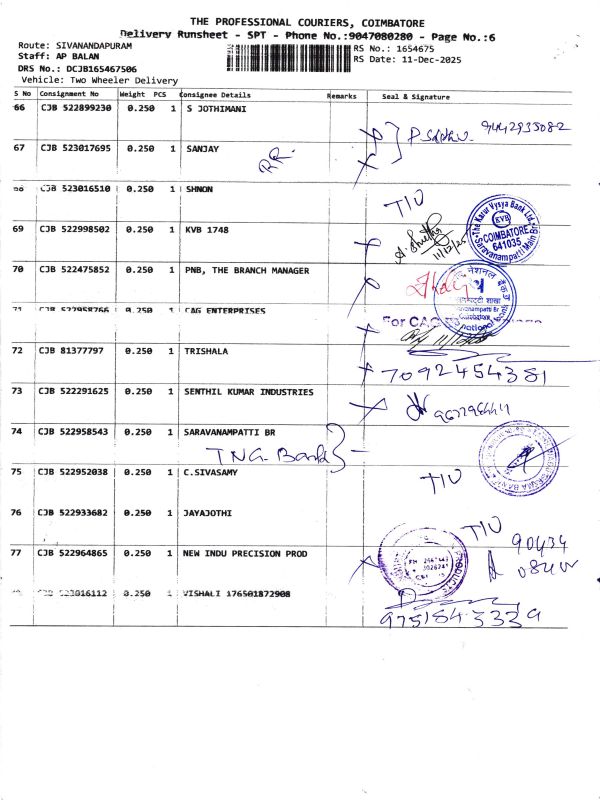 THE PROFESSIONAL COURIERS, COIMBATORE
Delivery Runsheet - SPT - Phone No.:9047080280 - Page No.:6
Route: SIVANANDAPURAM
Staff: AP BALAN
DRS No.: DCJB165467506
Vehicle: Two Wheeler Delivery
RS No.: 1654675
RS Date: 11-Dec-2025
S No Consignment No Weight PCS Consignee Details Remarks Seal & Signature
66 CJB 522899230 0.250 1 S JOTHIMANI
9442935082
67 CJB 523017695 0.250 1 SANJAY
68 CJB 523016510 0.250 1 SHNON
TIU
69 CJB 522998502 0.250 1 KVB 1748
11/12/25
The Karur Vysya Bank Ltd.
KVB
COIMBATORE
641035
Saravanampatti Main Br
70 CJB 522475852 0.250 1 PNB, THE BRANCH MANAGER
71 CJB 522958766 0.250 1 CAG ENTERPRISES
For CAG
72 CJB 81377797 0.250 1 TRISHALA
7092454381
73 CJB 522291625 0.250 1 SENTHIL KUMAR INDUSTRIES
74 CJB 522958543 0.250 1 SARAVANAMPATTI BR
TNG Bank
75 CJB 522952038 0.250 1 C.SIVASAMY
TIU
76 CJB 522933682 0.250 1 JAYAJOTHI
TIU
90434
77 CJB 522964865 0.250 1 NEW INDU PRECISION PROD
78 CJB 523016112 0.250 1 VISHALI 176501872908
9751843339